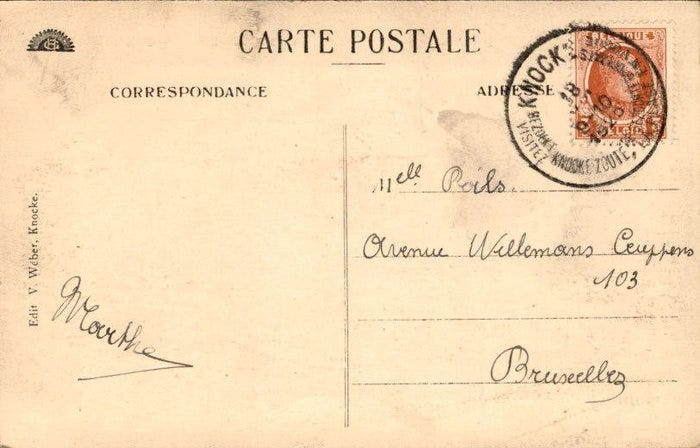 CARTE POSTALE
CORRESPONDANCE
ADRESSE
BELGIQUE
KNOCK
VISITEZ
BEZOEKT KNOCKE ZOUTE,
18
10
Mlle Poils.
Avenue Willemans Ceuppens
103
Bruxelles
Marthe
Edit V. Wéber, Knocke.